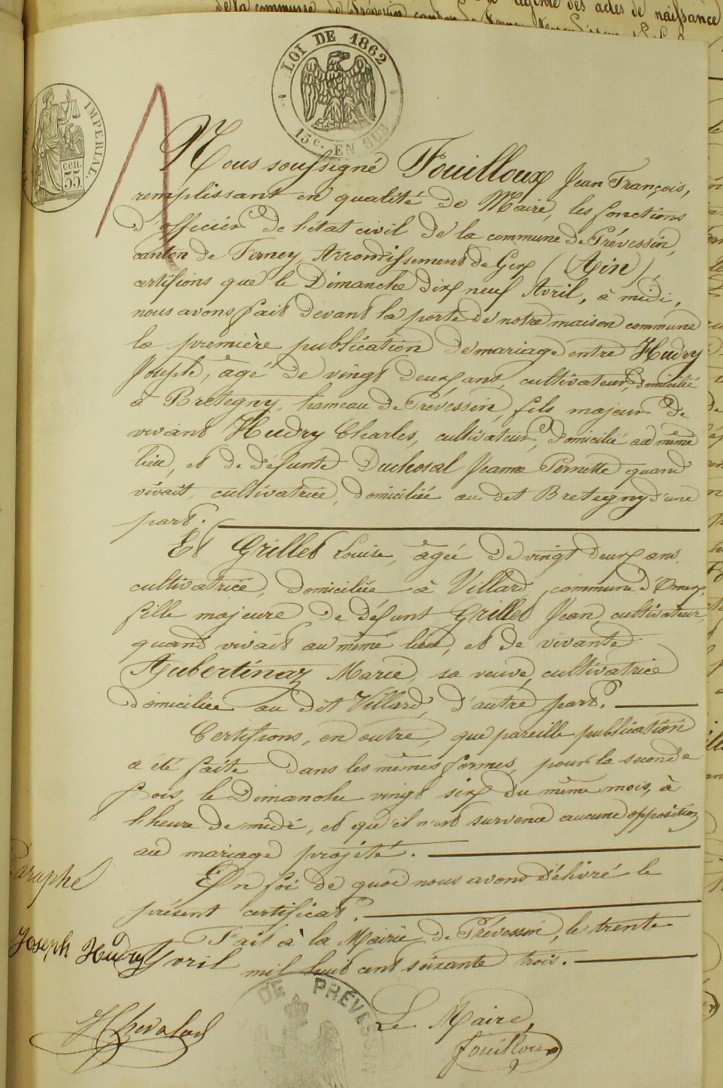 LOI DE 1862
15c. EN SUS
IMPERIAL.
CEN.
35
Nous soussigné Fouilloux Jean François,
remplissant en qualité de Maire, les fonctions
d'officier de l'état civil de la commune de Prévessin,
canton de Ferney Arrondissement de Gex (Ain),
certifions que le Dimanche dix neuf Avril, à midi,
nous avons fait devant la porte de notre maison commune
la première publication de mariage entre Hudry
Joseph, âgé de vingt deux ans, cultivateur, domicilié
à Bretigny, hameau de Prévessin, fils majeur de
vivant Hudry Charles, cultivateur, domicilié au même
lieu, et de défunte Duchosal Jeanne Pernette quand
vivait, cultivatrice, domiciliée au dit Bretigny d'une
part.
Et Grillet Louise, âgée de vingt deux ans,
cultivatrice, domiciliée à Villard, commune d'Ornex,
fille majeure de défunt Grillet Jean, cultivateur
quand vivait au même lieu, et de vivante
Aubertinaz Marie, sa veuve, cultivatrice
domiciliée au dit Villard, d'autre part.
Certifions, en outre, que pareille publication
a été faite dans les mêmes formes, pour la seconde
fois, le Dimanche vingt six du même mois, à
l'heure de midi, et qu'il n'est survenu aucune opposition
au mariage projeté.
En foi de quoi nous avons délivré le
présent certificat.
Fait à la Mairie de Prévessin, le trente
Avril mil huit cent soixante trois.
Paraphé
Joseph Hudry
Le Maire,
Fouilloux
DE PRÉVESSIN